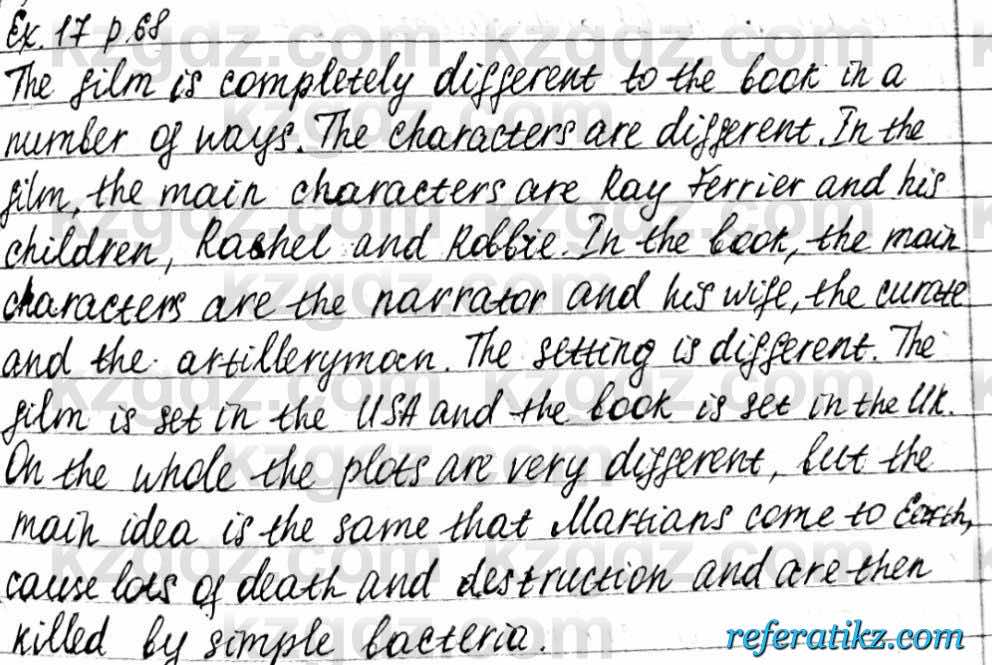 Ex. 17 p 68
The film is completely different to the book in a
number of ways. The characters are different. In the
film, the main characters are Ray Ferrier and his
children, Rashel and Robbie. In the book, the main
characters are the narrator and his wife, the curate
and the artilleryman. The setting is different. The
film is set in the USA and the book is set in the UK.
On the whole the plots are very different, but the
main idea is the same that Martians come to Earth,
cause lots of death and destruction and are then
killed by simple bacteria.
referatikz.com